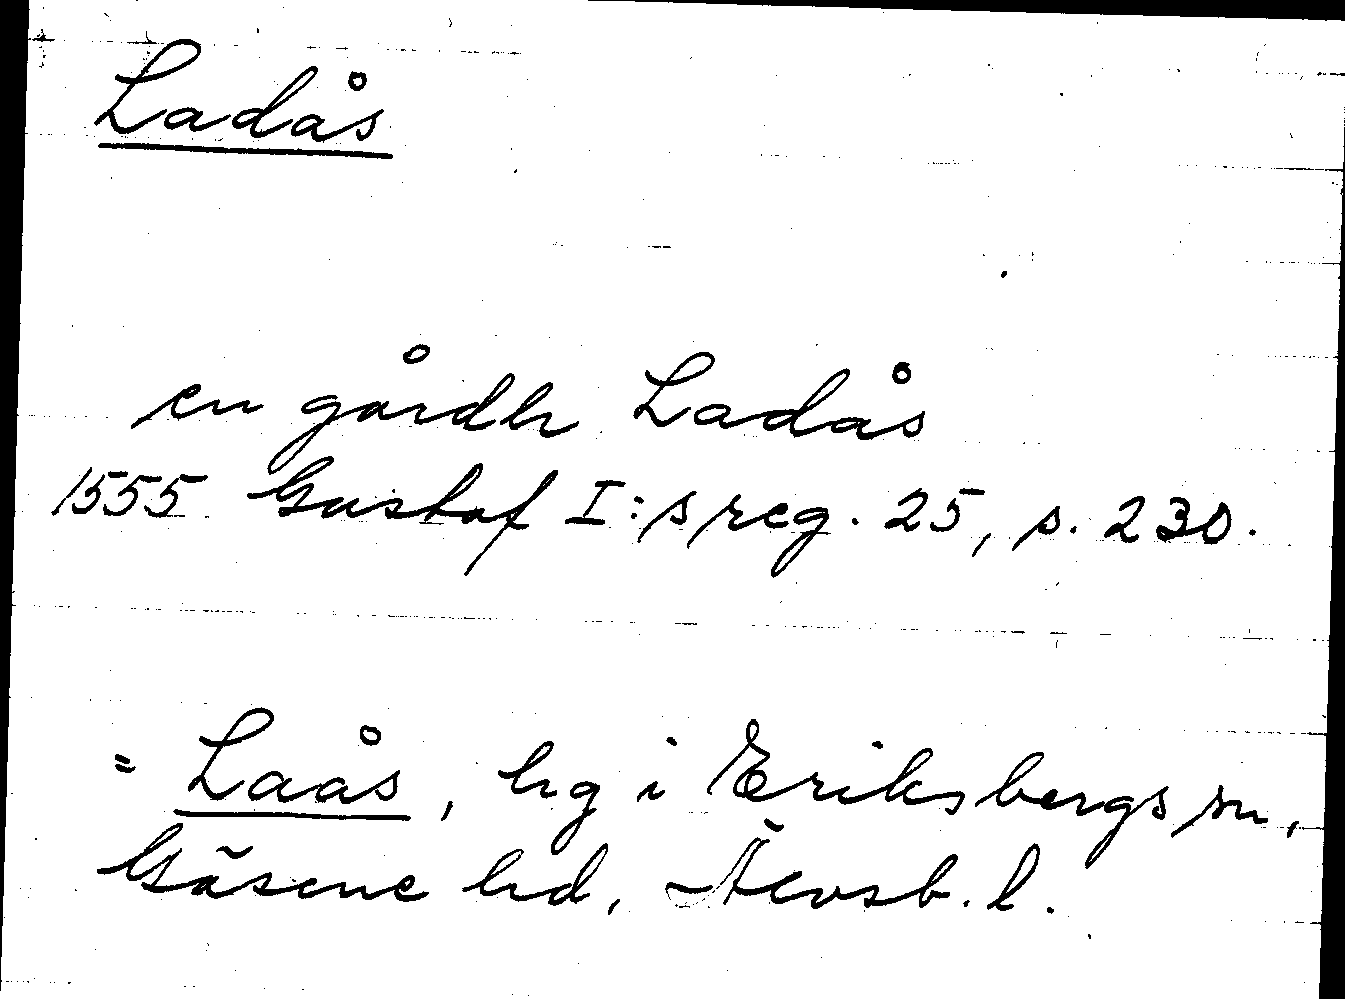 Ladås
en gårdh Ladås
1555 Gustaf I:s reg. 25, s. 230.
= Laås, hg i Eriksbergs sn,
Gäsene hd, Älvsb. l.